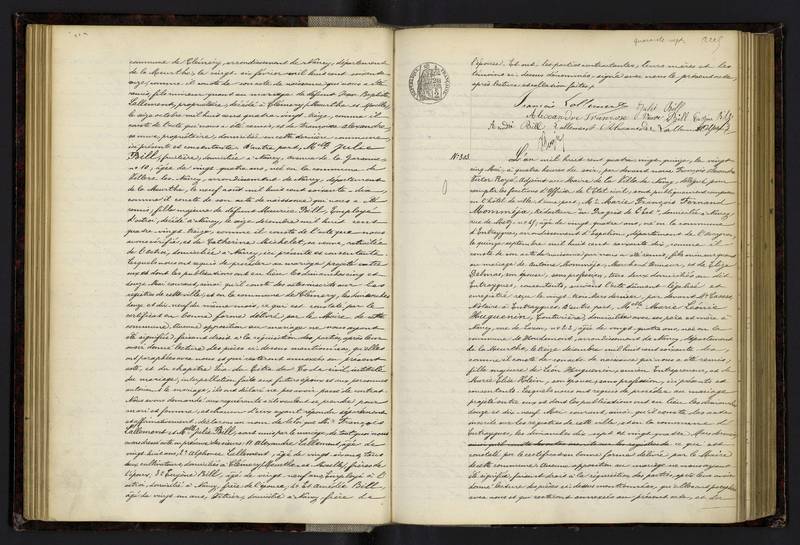 commune de Cléurey, arrondissement de Nancy, département
de la Meurthe, le vingt six février mil huit cent soixante
onze, comme il conste de son acte de naissance qui nous a été
remis, fils mineur quant au mariage de défunt Jean Baptiste
Lallement, propriétaire, décédé à
le onze octobre mil huit cent quatre vingt onze, comme il
conste de l'acte qui nous a été remis, et de Françoise Alexandre,
sa veuve, propriétaire, domiciliée en cette dernière commune,
ici présente et consentante. D'autre part, Melle Julie
Bill, domiciliée à Nancy, avenue de la Garenne
no 10, âgée de vingt quatre ans, née en la commune de
Villers les Nancy, arrondissement de Nancy, département
de la Meurthe, le neuf août mil huit cent soixante dix,
comme il conste de son acte de naissance qui nous a été
remis, fille majeure de défunt Maurice Bill, Employé
d'octroi, décédé à Nancy, le onze décembre mil huit cent
quatre vingt treize, comme il conste de l'acte que nous
avons vérifié, et de Catherine Michelet, sa veuve, retraitée
de l'octroi, domiciliée à Nancy, ici présente et consentante.
Lesquels nous ont requis de procéder au mariage projeté entre
eux et dont les publications ont eu lieu les dimanches cinq et
douze Mai courant, ainsi qu'il conste des actes inscrits sur les
registres de cette ville, et en la commune de Cléurey, les dimanches
douze et dix neuf du même mois, ce qui est constaté par le
certificat en bonne forme délivré par le Maire de cette
commune, aucune opposition au mariage ne nous ayant
été signifiée, faisant droit à la réquisition des parties, après leur
avoir donné lecture des pièces ci-dessus mentionnées, qu'elles
ont paraphées avec nous et qui resteront annexées au présent
acte, et du chapitre six du titre du Code civil, intitulé
du mariage, interpellation faite aux futurs époux et aux personnes
autorisant le mariage, ils ont déclaré ne pas avoir passé de contrat.
Nous avons demandé aux requérants s'ils veulent se prendre pour
mari et femme, et chacun d'eux ayant répondu séparément
et affirmativement, déclarons au nom de la loi que M. François
Lallement et Melle Julie Bill, sont unis par le mariage. De tout quoi nous
avons dressé acte en présence des sieurs: 1o Alexandre Lallement, âgé de
vingt huit ans, 2o Alphonse Lallement, âgé de vingt cinq ans, tous
deux cultivateurs, domiciliés à Cléurey, frères de
l'époux, 3o Eugène Bill, âgé de vingt neuf ans, Employé à l'
octroi, domicilié à Nancy, frère de l'épouse, 4o et Amédée Bill
âgé de vingt un ans, domicilié à Nancy, frère de
quarante sept
l'épouse. Et ont, les parties contractantes, leurs mères et les
témoins ci-dessus dénommés, signé avec nous le présent acte,
après lecture et collation faites.
François Lallement Julie Bill
Amédée Bill Lallement Alexandre Lallement
No 303
L'an mil huit cent quatre vingt quinze, le vingt
cinq Mai, à quatre heures du soir, par devant nous François Alexandre
Victor Royé, adjoint au Maire de la Ville de Nancy, délégué pour
remplir les fonctions d'Officier de l'Etat civil, sont publiquement comparus
en l'hôtel de Ville: d'une part, Mr. Marie François Fernand
Monmija, Rédacteur au Progrès de l'Est, domicilié à Nancy,
rue de Metz, âgé de vingt quatre ans, né en la commune
d'Entraygues, arrondissement d'Espalion, département de l'Aveyron,
le quinze septembre mil huit cent soixante dix, comme il
conste de son acte de naissance qui nous a été remis, fils mineur quant
au mariage de Antoine Monmija, et de Elize
Delmas, son épouse, sans profession, tous deux domiciliés au dit
Entraygues, consentants, suivant l'acte dûment légalisé et
enregistré reçu le vingt trois Mai dernier, par devant Me Casses,
Notaire à Entraygues. D'autre part, Melle Marie Léonie
Huguenin, Couturière, domiciliée avec ses père et mère à
Nancy, rue de Laxou, no 22, âgée de vingt quatre ans, née en la
commune de Houdemont, arrondissement de Nancy, département
de la Meurthe, le douze décembre mil huit cent soixante dix,
comme il conste de son acte de naissance qui nous a été remis,
fille majeure de Léon Huguenin, ancien Entrepreneur, et de
Marie Elise Helein, son épouse, sans profession, ici présents et
consentants. Lesquels nous ont requis de procéder au mariage
projeté entre eux et dont les publications ont eu lieu les dimanches
douze et dix neuf Mai courant, ainsi qu'il conste des actes
inscrits sur les registres de cette ville, et en la commune de
Entraygues, les dimanches dix sept et vingt quatre Mars dernier
ce qui est
constaté par le certificat en bonne forme délivré par le Maire
de cette commune. Aucune opposition au mariage ne nous ayant
été signifiée, faisant droit à la réquisition des parties, après leur avoir
donné lecture des pièces ci-dessus mentionnées, qu'elles ont paraphées
avec nous et qui resteront annexées au présent acte, et du